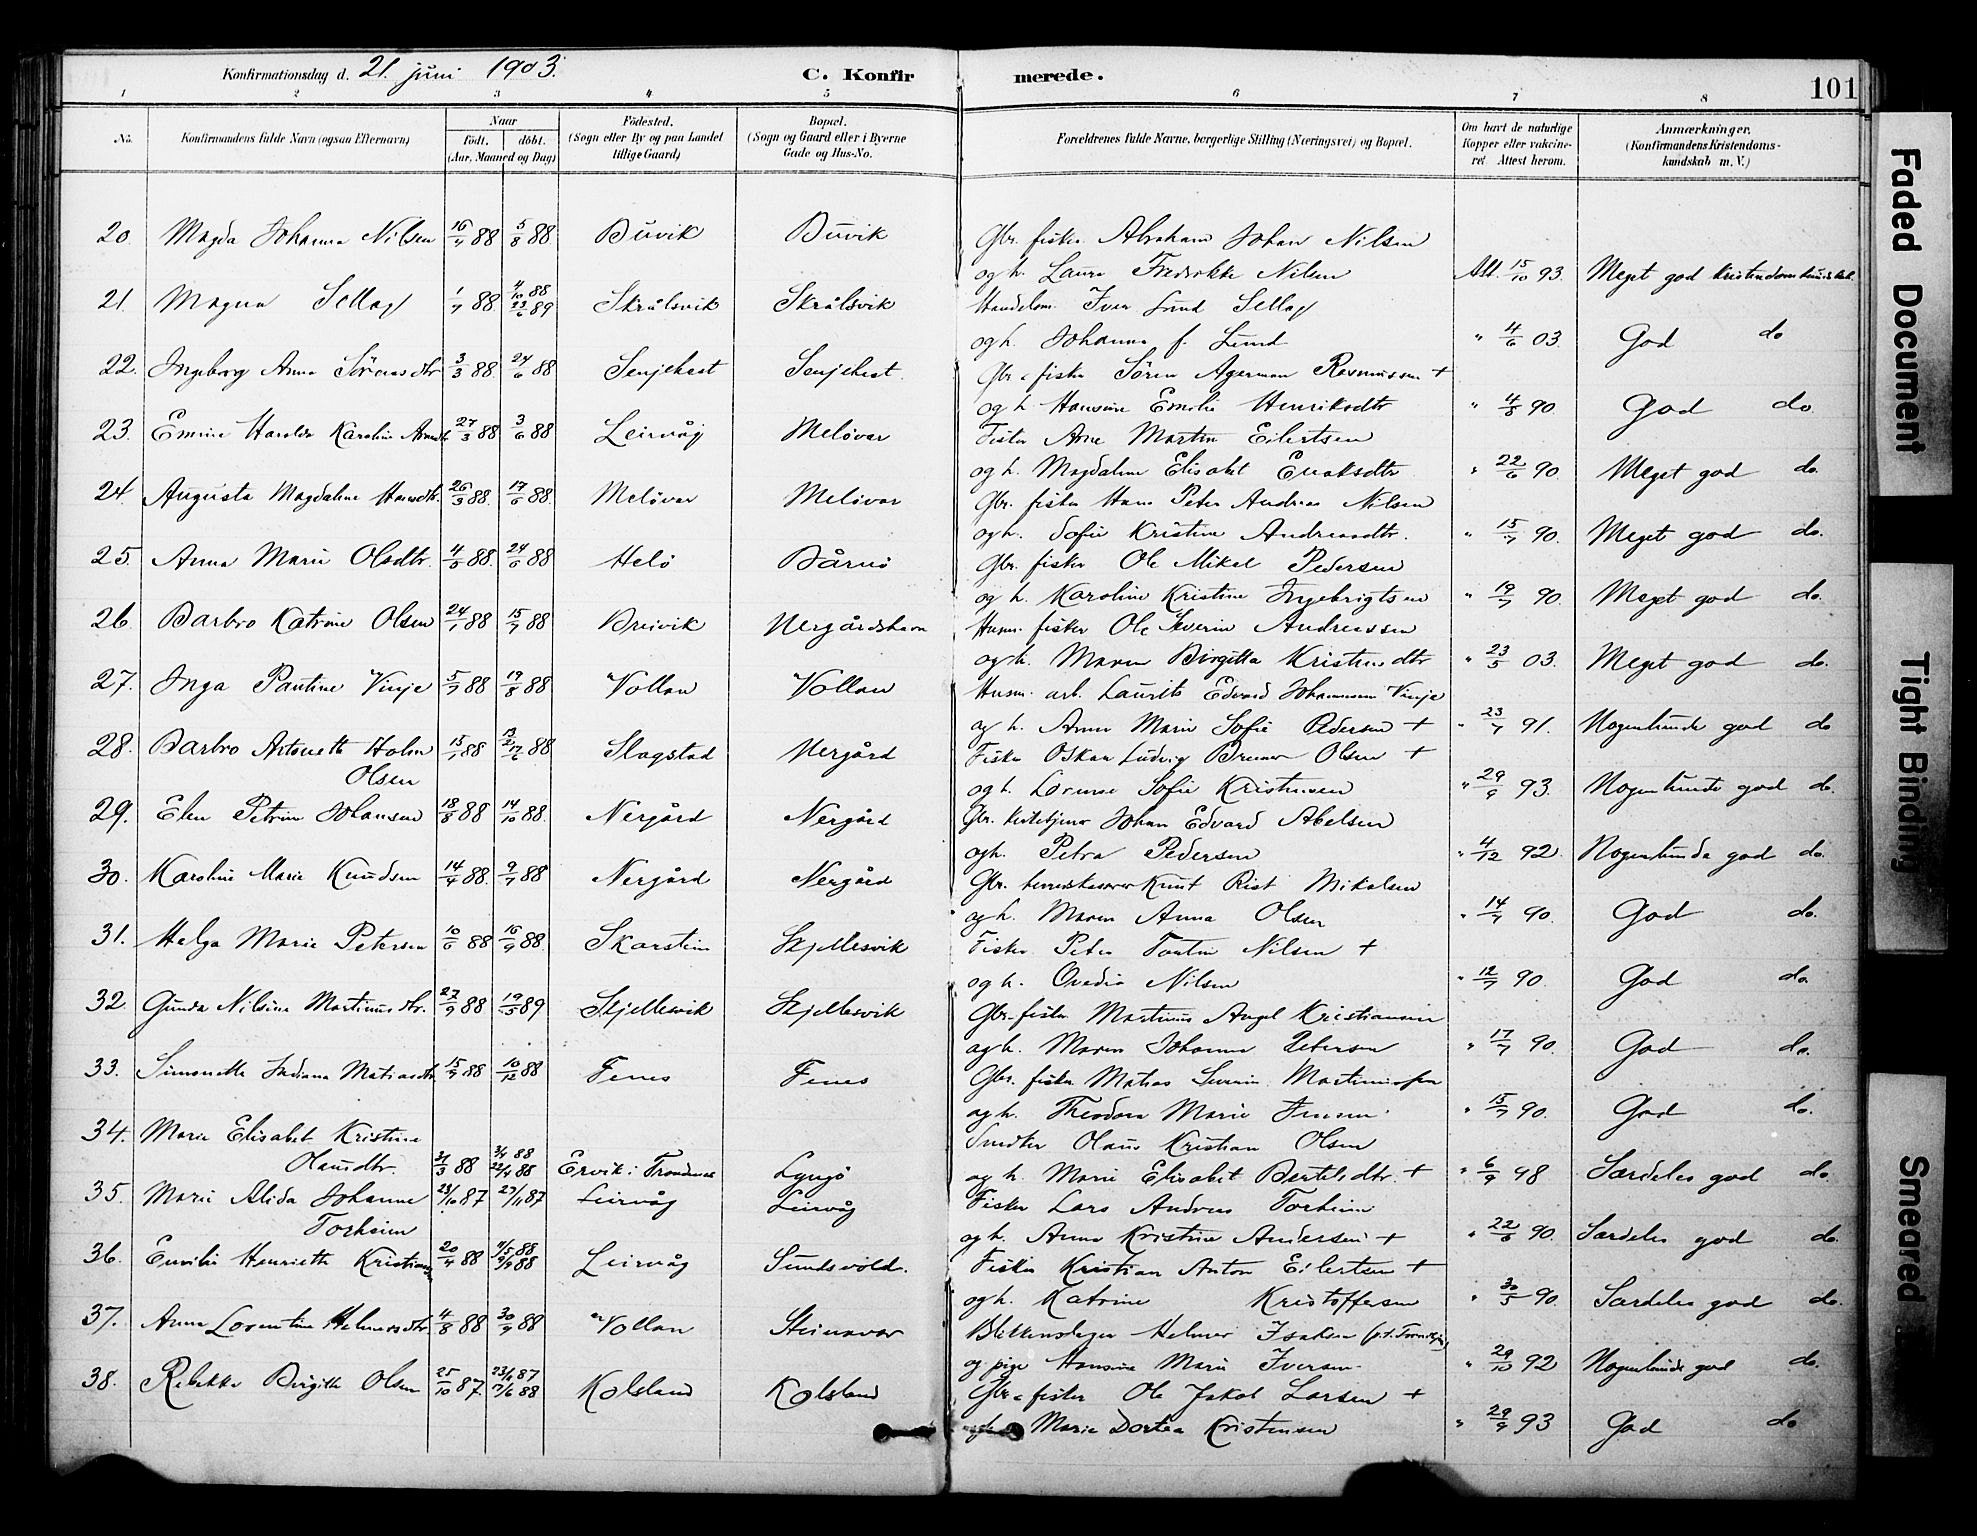 Konfirmationsdag d. 21. juni 1903. C. Konfirmerede. 101
1 2 3 4 5 6 7 8
No. Konfirmandens fulde Navn (ogsaa Efternavn) Naar født. døbt. (Aar, Maaned og Dag) Fødested. (Sogn eller By og paa Landet tillige Gaard) Bopæl. (Sogn og Gaard eller i Byerne Gade og Hus-No. Forældrenes fulde Navne, borgerlige Stilling (Næringsvei) og Bopæl. Om havt de naturlige Kopper eller vakcineret Attest herom. Anmærkninger. (Konfirmandens Kristendomskundskab m. V.)
20. Magda Johanna Nilsen 16/7 88 5/8 88. Buvik Buvik Gbr. fisker Abraham Johan Nilsen
og h. Laura Fredrikke Nilsen Att. 15/10 93. Meget god kristendomskundskab.
21. Magna Sellæg 1/7 88. 4/10 88 23/6 89 Skrålsvik Skrålsvik Handelsm. Iver Lund Sellæg
og h. Johanna f. Lund " 4/6 03. God do
22. Ingeborg Anna Sörensdtr 3/3 88. 24/6 88 Senjehest Senjehest. Gbr. fisker Sören Agerman Rasmussen +
og h. Hansine Emilie Henriksdtr " 4/8 90. God do.
23. Emine Haralda Karoline Arnedtr 27/3 88 3/6 88 Leirvåg Melövar Fisker Arne Martin Eilertsen
og h. Magdalene Elisabet Enoksdtr " 22/6 90. Meget god do.
24. Augusta Magdalene Hansdtr. 26/3 88. 17/6 88. Melövar Melövar Gbr. fisker Hans Peter Andreas Nilsen
og h. Sofie Kristine Andreasdtr. " 15/7 90. Meget god do.
25. Anna Marie Olsdtr. 4/5 88. 24/6 88 Helö Bårnö Gbr. fisker Ole Mikal Pedersen
og h. Karoline Kristine Ingebrigtsen " 19/7 90. Meget god do.
26. Barbro Katrine Olsen 24/1 88 15/7 88 Breivik Nergårdshavn Husm. fisker Ole Severin Andreassen
og h. Maren Birgitta Kristensdtr " 23/5 03. Meget god do.
27. Inga Pauline Vinje 5/7 88 19/8 88. Vollan Vollan Husm. arb. Laurits Edvard Johannesen Vinje
og h. Anna Marie Sofie Pedersen + " 23/7 91. Nogenlunde god do
28. Barbro Antonette Holm 15/1 88 13/2 17/6 88 Slagstad Nergård Fisker Oskar Ludvig Olsen +
Olsen og h. Sofie Kristensen " 29/9 93. Nogenlunde god do.
29. Elen Petrine Johansen 18/8 88 14/10 88. Nergård Nergård Gbr. kirketjener Johan Edvard Abelsen
og h. Petra Pedersen " 4/12 92. Nogenlunde god do.
30. Karoline Marie Knudsen 14/4 88. 9/7 88 Nergård Nergård Gbr. Knut Rist Mikalsen
og h. Maren Anna Olsen " 14/7 90. God do.
31. Helga Marie Petersen 10/6 88 16/9 88. Skarstein Skjellesvik Fisker Peter Nilsen +
og h. Ovedia Nilsen " 12/7 90. God do.
32. Gunda Nilsine Martinusdtr. 27/9 88 19/5 89 Skjellesvik Skjellesvik Gbr. fisker Martinus Angel Kristiansen
og h. Maren Johanna Petersen " 17/7 90. God do.
33. Simonette Indiana Matiasdtr 15/9 88 10/12 88 Fenes Fenes Gbr. fisker Matias Severin Martinussen
og h. Theodora Marie Jensen " 15/7 90. God do.
34. Marie Elisabet Kristine Smed Olaus Kristian Olsen
Olausdtr. 31/3 88 3/4 88 22/4 88 Ervik i Trondenes Lysjö og h. Marie Elisabet Bertelsdtr. + " 6/9 98 Særdeles god do.
35. Marie Alida Johanne 23/10 87 27/11 87 Leirvåg Leirvåg Fisker Lars Andreas Torheim
Torheim og h. Anna Kristine Andersen + " 22/6 90. Særdeles god do.
36. Emilie Henriette Kristians. 20/4 88 Leirvåg Sundsvold. Fisker Kristian Anton Eilertsen +
og h. Katrine Kristoffersen " 30/5 90. Særdeles god do.
37. Anna Lorentine Helmersdtr. 4/8 88 30/9 88 Vollan Steinavær Blikkenslager Helmer Isaksen
og pige Hansine Marie Iversen " 29/10 92 Nogenlunde god do.
38. Rebekka Birgitte Olsen 25/10 87 Kolsland Kolsland Gbr. fisker Ole Jakob Larsen +
og h. Marie Dortea Kristensen " 29/9 93 God do
Faded Document
Tight Binding
Smeared